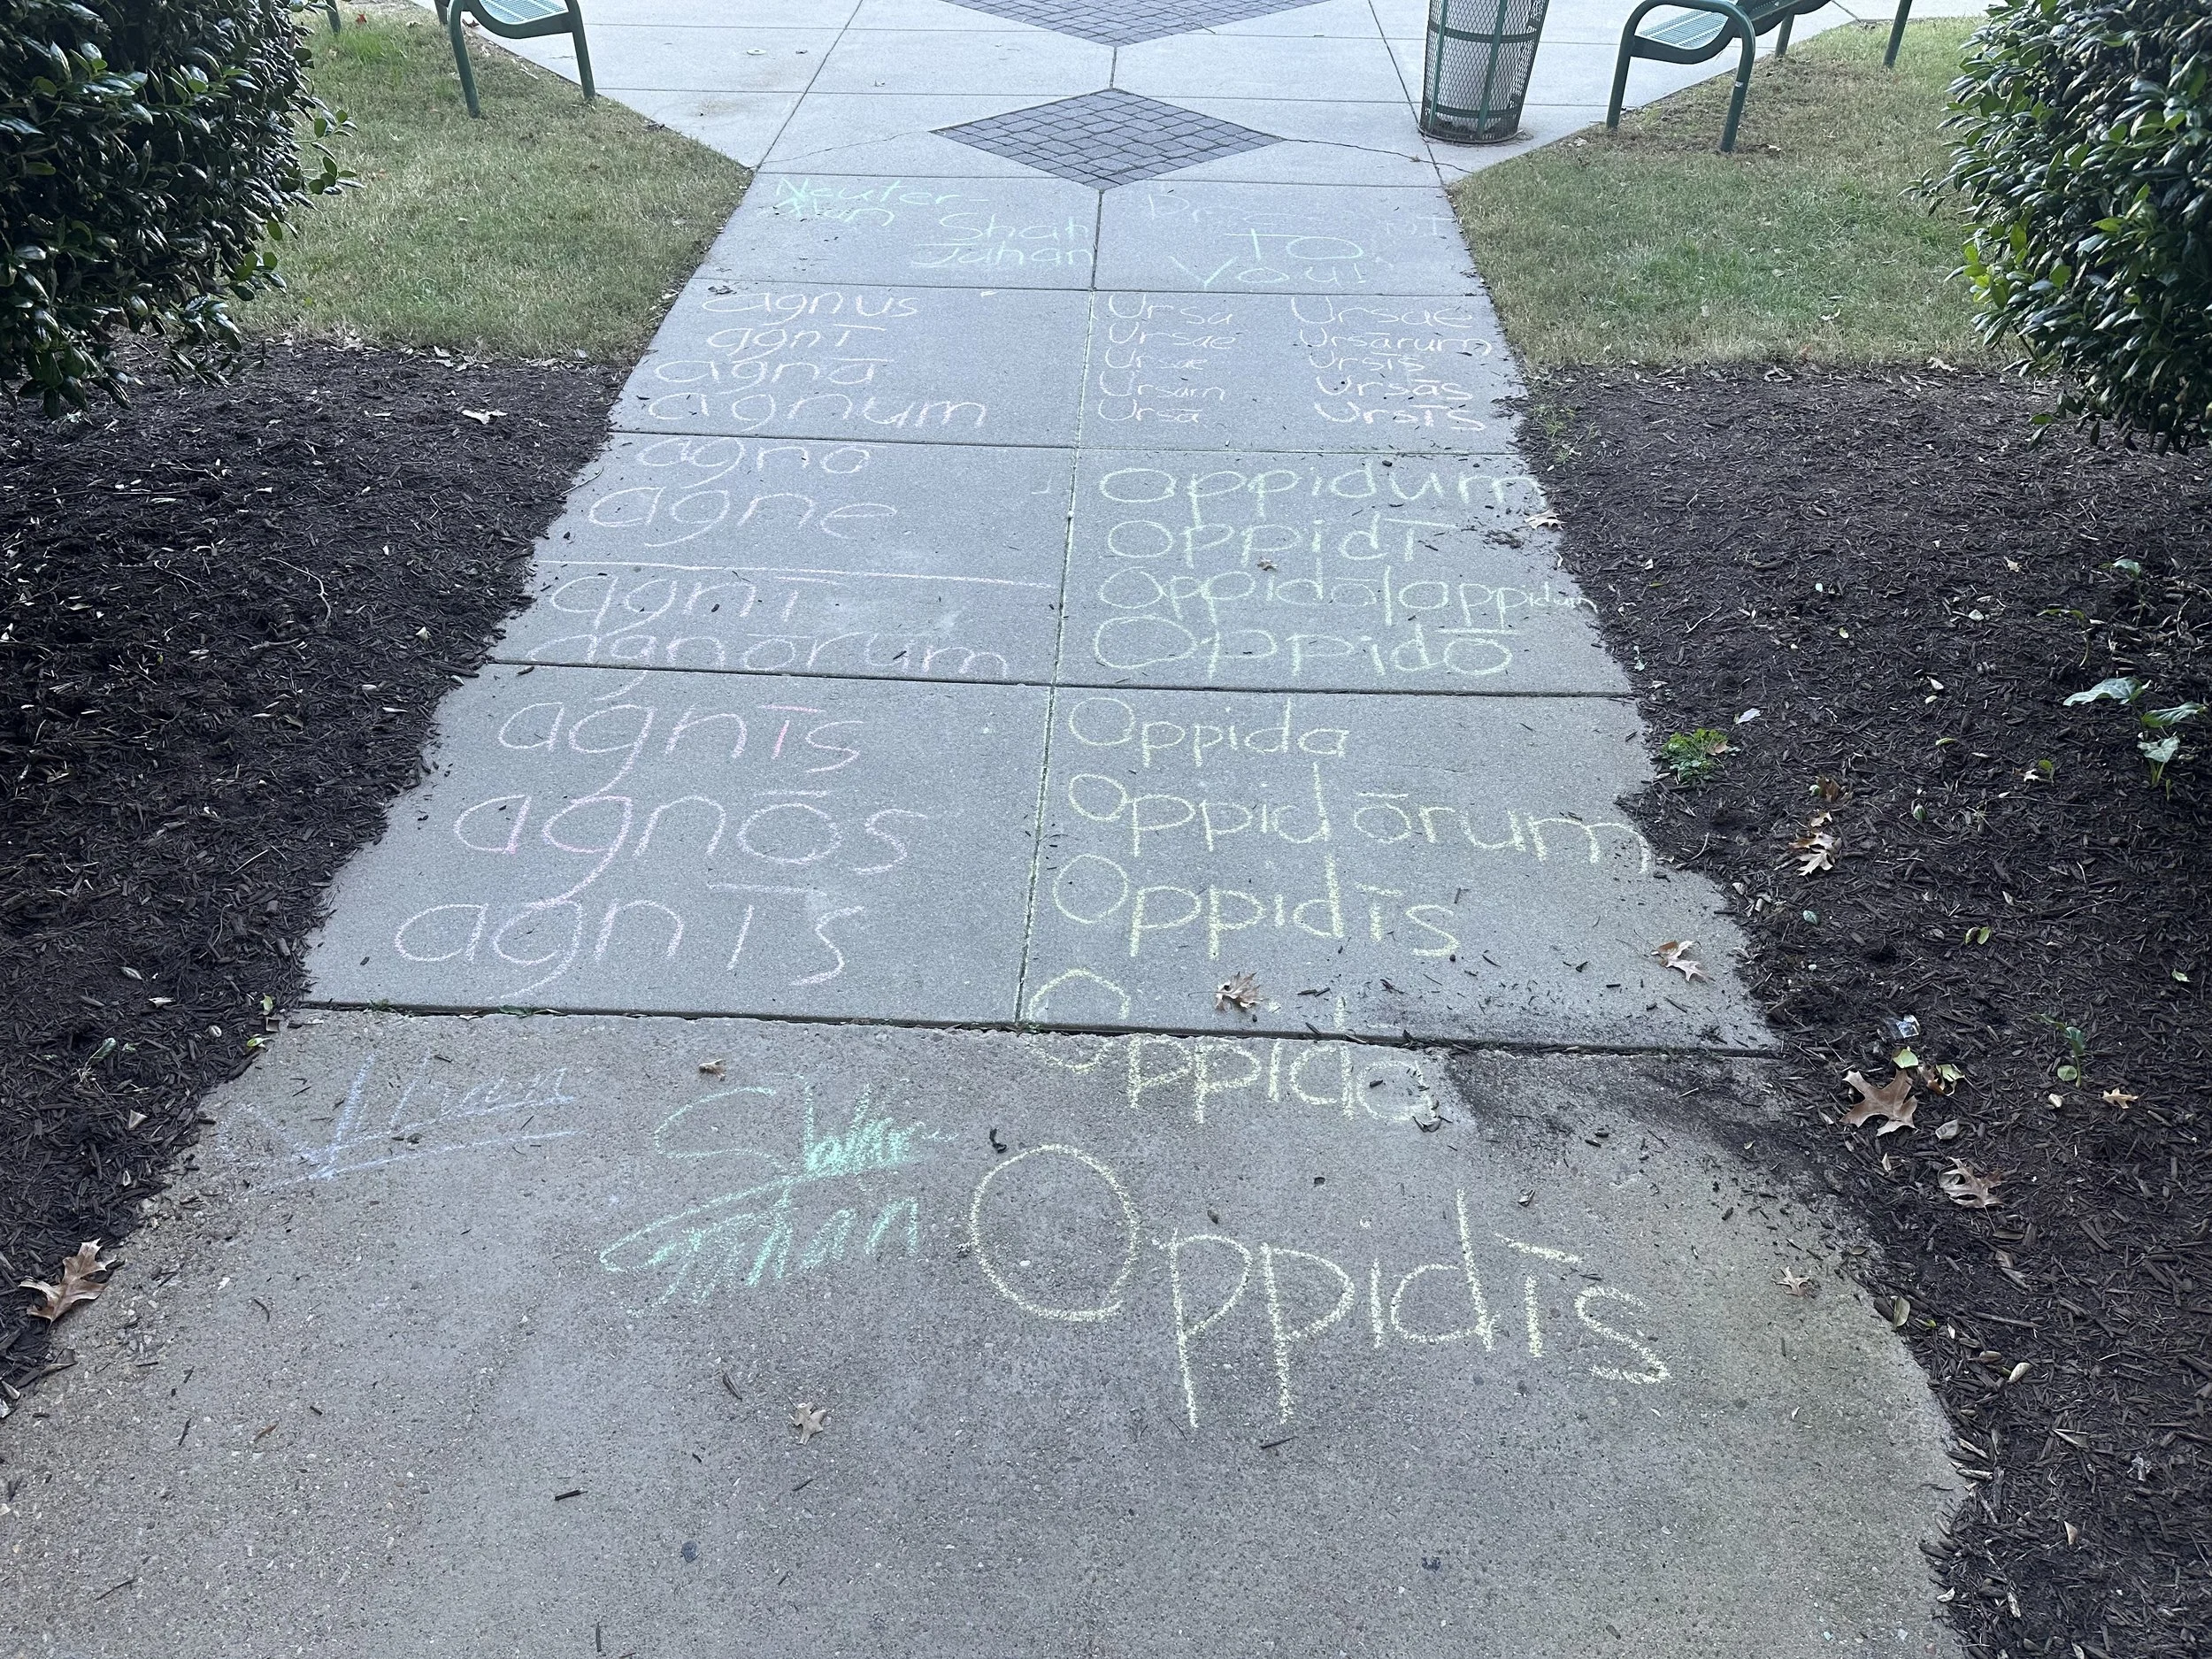 Neuter
Shah
Jahan
TO
You!
agnus
agnī
agnā
agnum
agno
agne
agnī
agnōrum
agnīs
agnōs
agnīs
Ursa Ursae
Ursae Ursārum
Ursae Ursīs
Ursam Ursās
Ursā Ursīs
Oppidum
Oppidī
Oppidō|oppidum
Oppidō
Oppida
Oppidōrum
Oppidīs
Oppida
Oppidīs